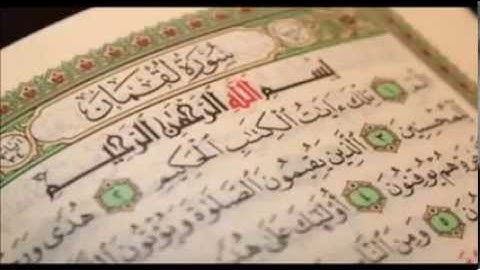 سُورَةُ لُقْمَانَ
بِسْمِ اللَّهِ الرَّحْمَٰنِ الرَّحِيمِ
الٓمٓ ١ تِلْكَ ءَايَٰتُ الْكِتَٰبِ الْحَكِيمِ ٢ هُدًى وَرَ
الْمُحْسِنِينَ ٣ الَّذِينَ يُقِيمُونَ الصَّلَوٰةَ وَيُؤْتُونَ
هُمْ يُوقِنُونَ ٤ أُولَٰٓئِكَ عَلَىٰ هُدًى
٥ وَمِنَ النَّا